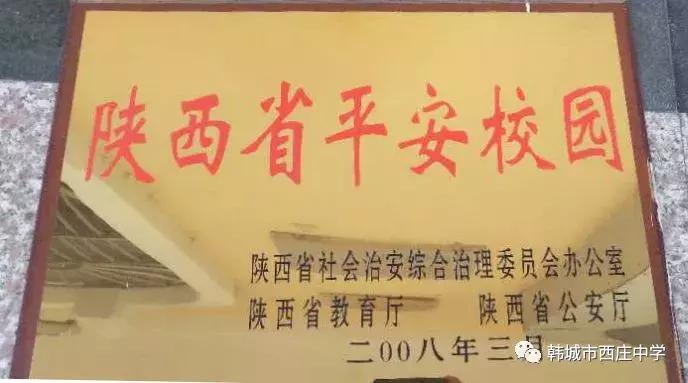 陕西省平安校园
陕西省社会治安综合治理委员会办公室
陕西省教育厅 陕西省公安厅
二00八年三月
韩城市西庄中学